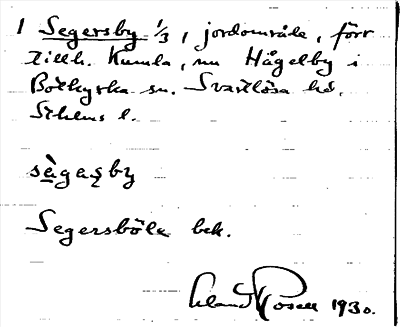 1 Segersby 1/3, jordområde, förr
tillh. Kumla, nu Hågelby i
Botkyrka sn. Svartlösa hd.
Sthlms l.
sègaşby
Segersböle bek.
Erland Rosell 1930.